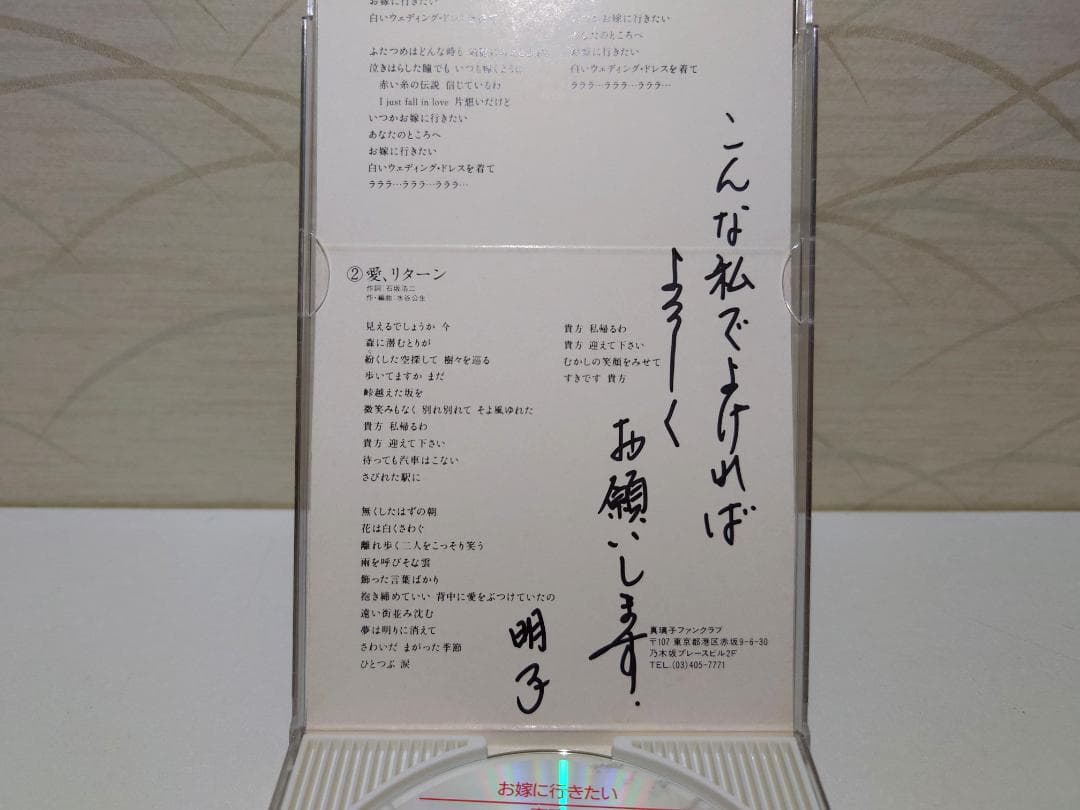 お嫁に行きたい
白いウェディング・ドレスを着て
ふたつめはどんな時も
泣きはらした瞳でも いつも
赤い糸の伝説 信じているわ
I just fall in love 片想いだけど
いつかお嫁に行きたい
あなたのところへ
お嫁に行きたい
白いウェディング・ドレスを着て
ラララ…ラララ…ラララ…
いつかお嫁に行きたい
あなたのところへ
お嫁に行きたい
白いウェディング・ドレスを着て
ラララ…ラララ…ラララ…
②愛、リターン
作詞 石坂浩二
作・編曲 水谷公生
見えるでしょうか 今
森に潜むとりが
紛くした空探して 樹々を巡る
歩いてますか まだ
峠越えた坂を
微笑みもなく 別れ別れて そよ風ゆれた
貴方 私帰るわ
貴方 迎えて下さい
待っても汽車はこない
さびれた駅に
無くしたはずの朝
花は白くさわぐ
離れ歩く二人をこっそり笑う
雨を呼びそな雲
飾った言葉ばかり
抱き締めていい 背中に愛をぶつけていたの
遠い街並み沈む
夢は明りに消えて
さわいだ まがった季節
ひとつぶ 涙
貴方 私帰るわ
貴方 迎えて下さい
むかしの笑顔をみせて
すきです 貴方
こんな私でよければ
よろしく
お願いします.
明子
真璃子ファンクラブ
〒107 東京都港区赤坂9-6-30
乃木坂プレースビル2F
TEL.(03)405-7771
お嫁に行きたい